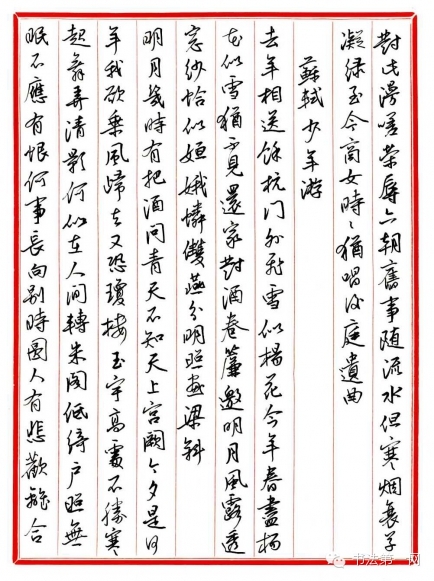 對此漫嗟榮辱六朝舊事随流水但寒烟衰草
凝绿至今商女時〻猶唱後庭遺曲
蘇軾少年游
去年相送餘杭门外飛雪似楊花今年春盡楊
花似雪猶不見還家對酒卷簾邀明月風露透
窓紗恰似姮娥憐雙燕分明照畫梁斜
明月幾時有把酒问青天不知天上宫闕今夕是何
年我欲乘風歸去又恐瓊樓玉宇高處不勝寒
起舞弄清影何似在人间轉朱阁低綺户照無
眠不應有恨何事長向别時圓人有悲歡離合
书法第一网